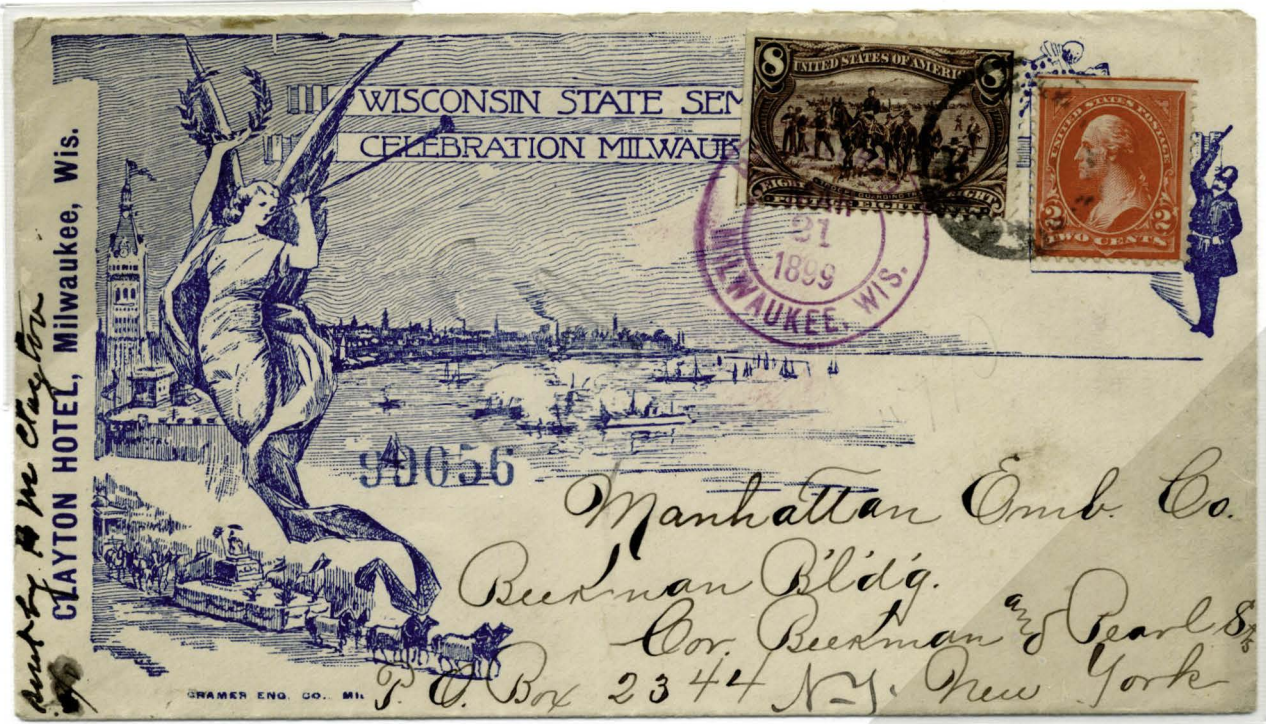 WISCONSIN STATE SEM
CELEBRATION MILWAUK
8 UNITED STATES OF AMERICA 8
EIGHT EIGHT
UNITED STATES POSTAGE
2 2
TWO CENTS
21
1899
MILWAUKEE, WIS.
CLAYTON HOTEL, Milwaukee, Wis.
Sent by M Clayton
99056
Manhattan Emb. Co.
Beekman Bldg.
Cor. Beekman and Pearl Sts
P.O. Box 2344 N.Y. New York
CRAMER ENG. CO. MIL